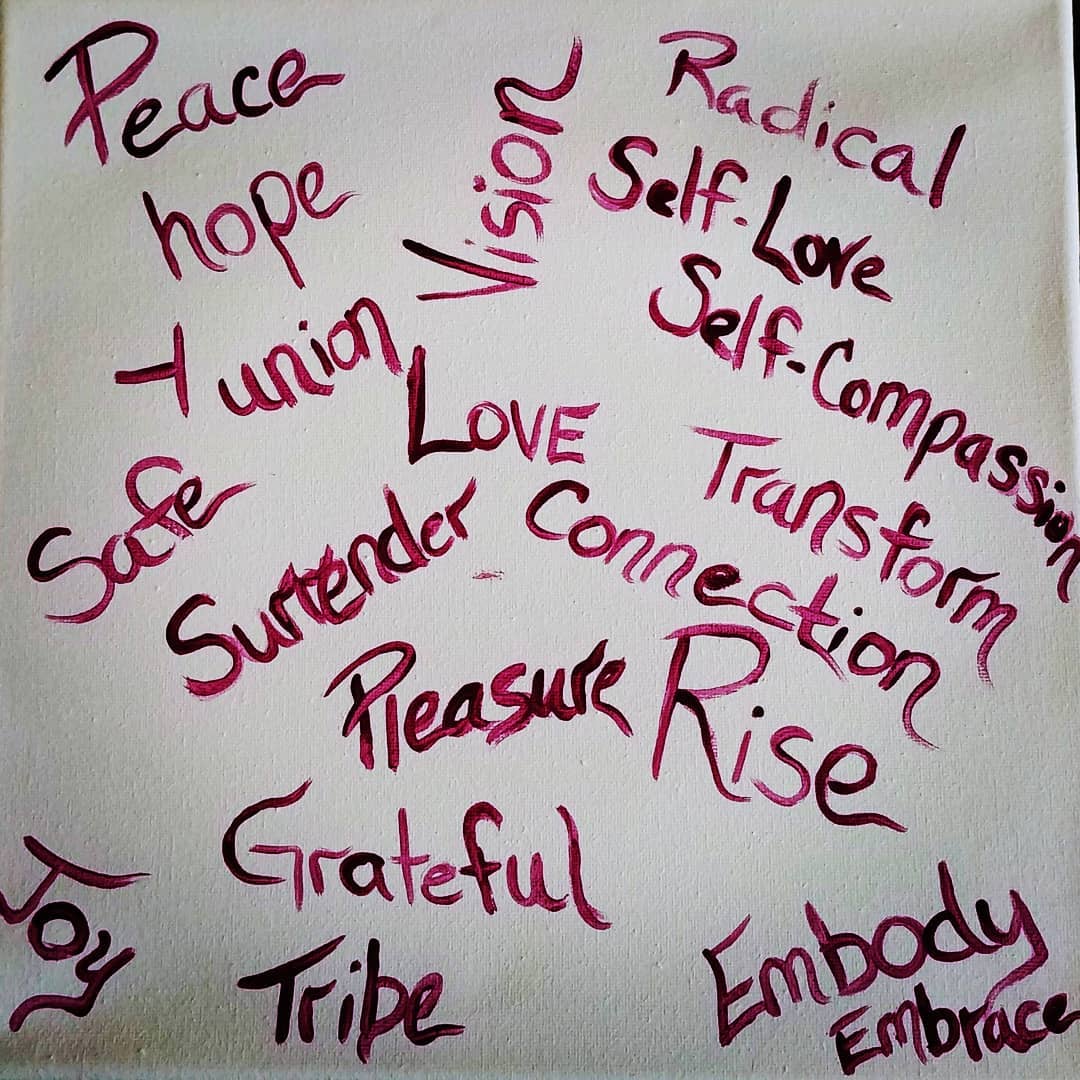 Peace
hope
Vision
Radical
Self-Love
Self-Compassion
union
Love
Transform
Safe
Surrender
Connection
Pleasure
Rise
Grateful
Joy
Tribe
Embody
Embrace